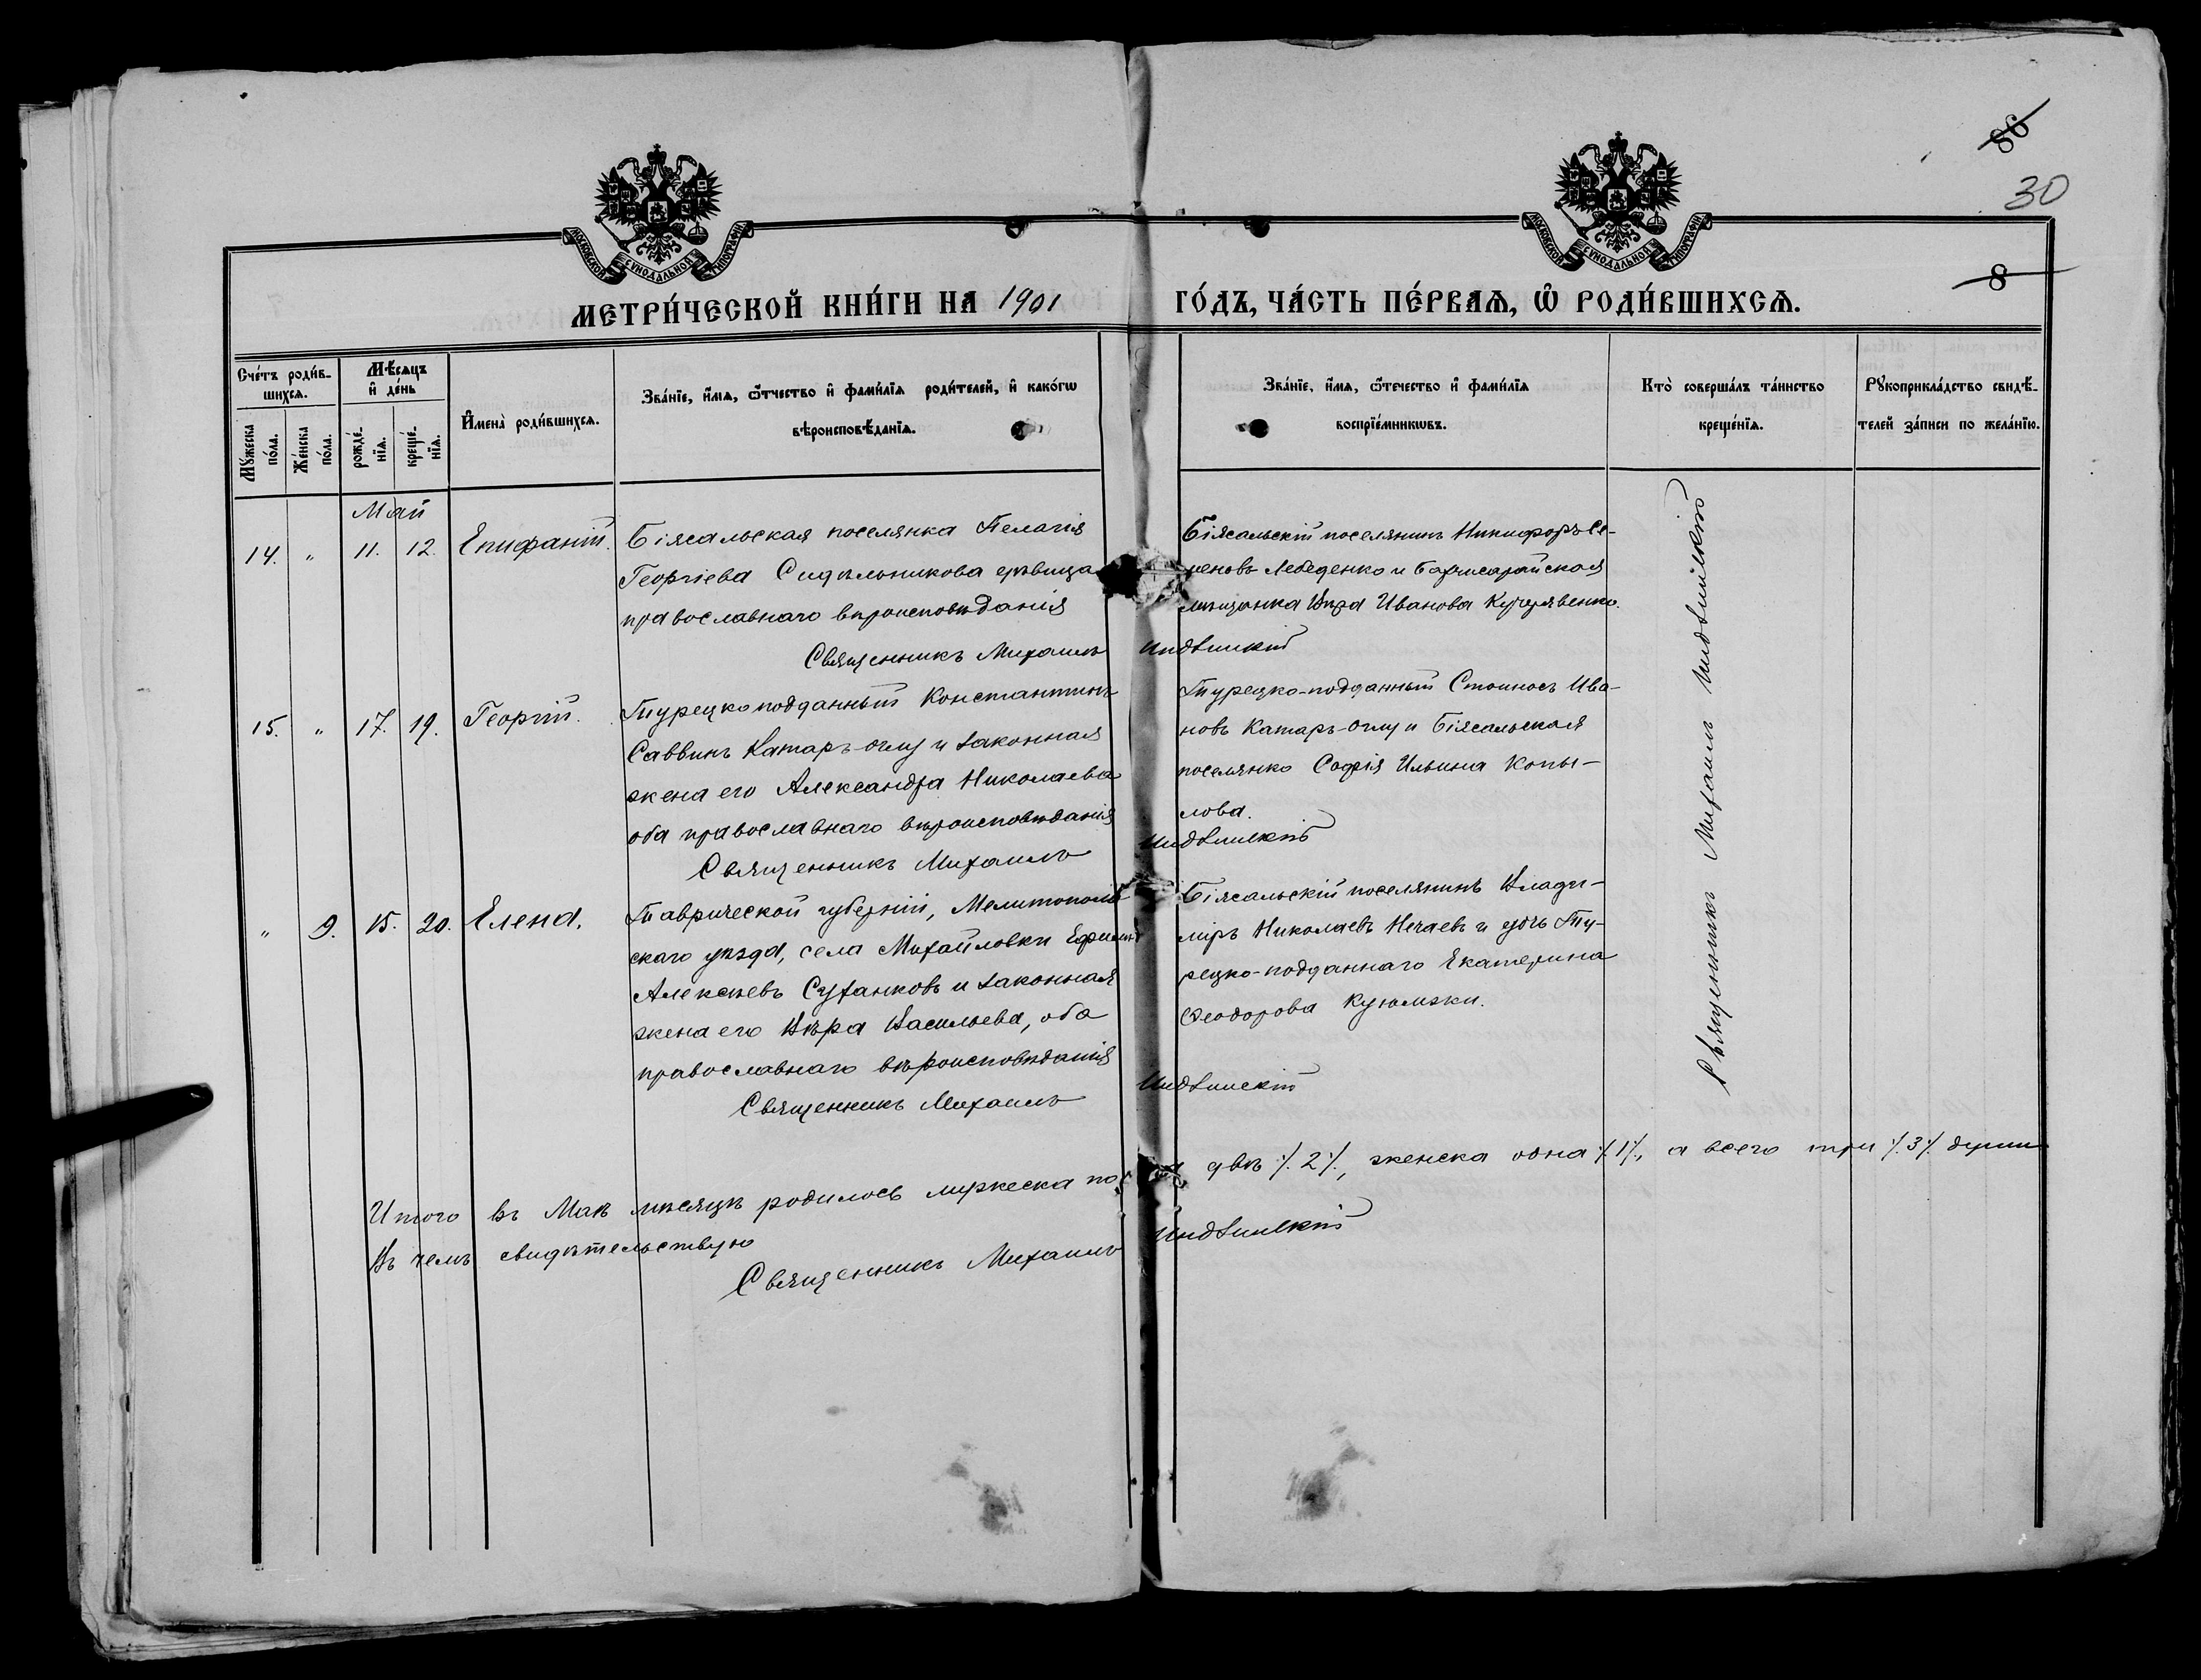 86
30
8
МОСКОВСКОЙ СУНОДАЛЬНОЙ ТИПОГРАФІИ
МОСКОВСКОЙ СУНОДАЛЬНОЙ ТИПОГРАФІИ
МЕТРИ́ЧЕСКОЙ КНИ́ГИ НА 1901 ГО́ДЪ, ЧА́СТЬ ПЕ́РВАѦ, Ѡ РОДИ́ВШИХСѦ.
Сче́тъ роди́в-
шихсѧ.
Мꙋ́жеска по́ла.
Же́нска по́ла.
Мѣ́сѧцъ и де́нь
рожде́-нїѧ.
креще́-нїѧ.
Имена̀ роди́вшихсѧ.
Зва́нїе, и́мѧ, ѻ́тчество и фами́лїѧ роди́телей, и како́гѡ
вѣроисповѣ́данїѧ.
Зва́нїе, и́мѧ, ѻ́течество и фами́лїѧ
воспрїе́мникѡвъ.
Кто̀ соверша́лъ та́инство
креще́нїѧ.
Рꙋкоприкла́дство свидѣ́-
телей за́писи по жела́нїю.
Май
14. " 11. 12. Епифаній. Біясальская поселянка Пелагія
Георгіева Сидѣльникова дѣвица
православнаго вѣроисповѣданія
Священникъ Михаилъ
Біясальскій поселянинъ Никифоръ Се-
меновъ Лебеденко и Бахчисарайская
мѣщанка Вѣра Ивановa Кучерявенко.
15. " 17. 19. Георгій. Турецкоподданный Константинъ
Саввинъ Катаръ-оглу и законная
жена его Александра Николаева
оба православнаго вѣроисповѣданія
Священникъ Михаилъ
Турецко-подданный Стоиносъ Ива-
новъ Катаръ-Оглу и Біясальская
поселянка Софія Ильина Копы-
лова.
" 9. 15. 20. Елена. Таврической губерніи, Мелитополь-
скаго уѣзда, села Михайловки Ефимъ
Алексѣевъ Суханковъ и законная
жена его Вѣра Васильева, оба
православнаго вѣроисповѣданія
Священникъ Михаилъ
Біясальскій поселянинъ Влади-
міръ Николаевъ Нечаевъ и дочь Ту-
рецко-подданнаго Екатерина
Ѳеодорова Куюмжи.
Священникъ Михаилъ
Итого въ Маѣ мѣсяцѣ родилось мужеска пола двѣ ·/. 2 ·/., женска одна ·/. 1 ·/., а всего три ·/. 3 ·/. души
Въ чемъ свидѣтельствую
Священникъ Михаилъ